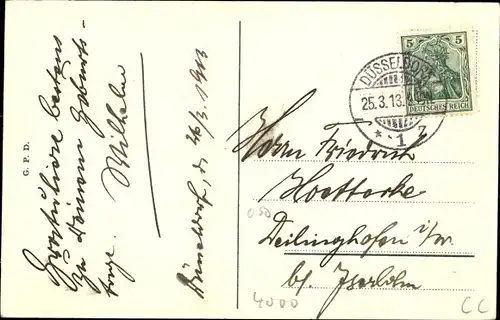 G. P. D.
Gratuliere bestens
zu Deinem Geburts-
tage.
Wilhelm
Düsseldorf, d. 26/3. 1913
5
DEUTSCHES REICH
DÜSSELDORF
25.3.13.
* 1 z
Herrn Friedrich
Deilinghofen i/W.
bz. Iserlohn
050
4000
CC